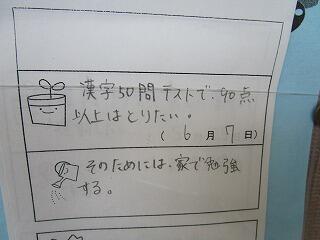 漢字50問テストで、90点
以上はとりたい。
( 6 月 7 日)
そのためには、家で勉強
する。